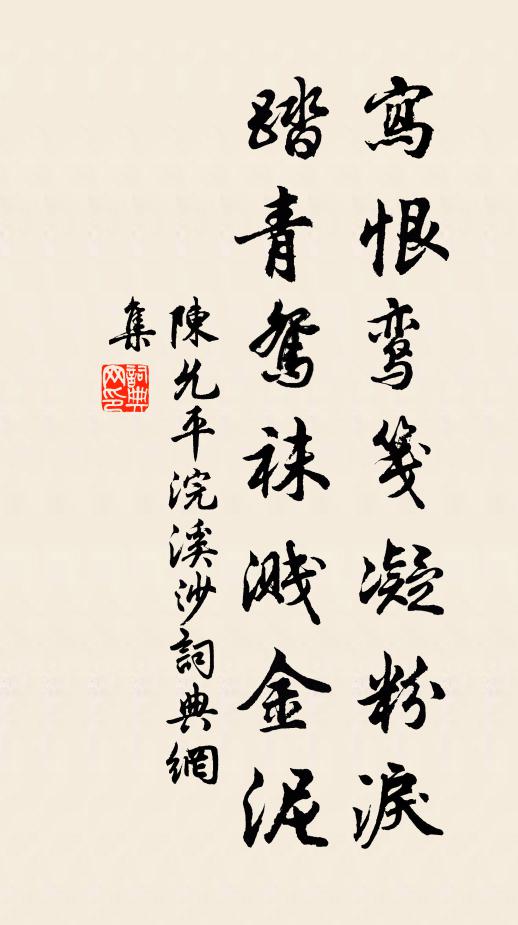 寫恨鸾箋凝粉淚
踏青鴛袜溅金泥
陳允平浣溪沙詞典網
集
詞典网印